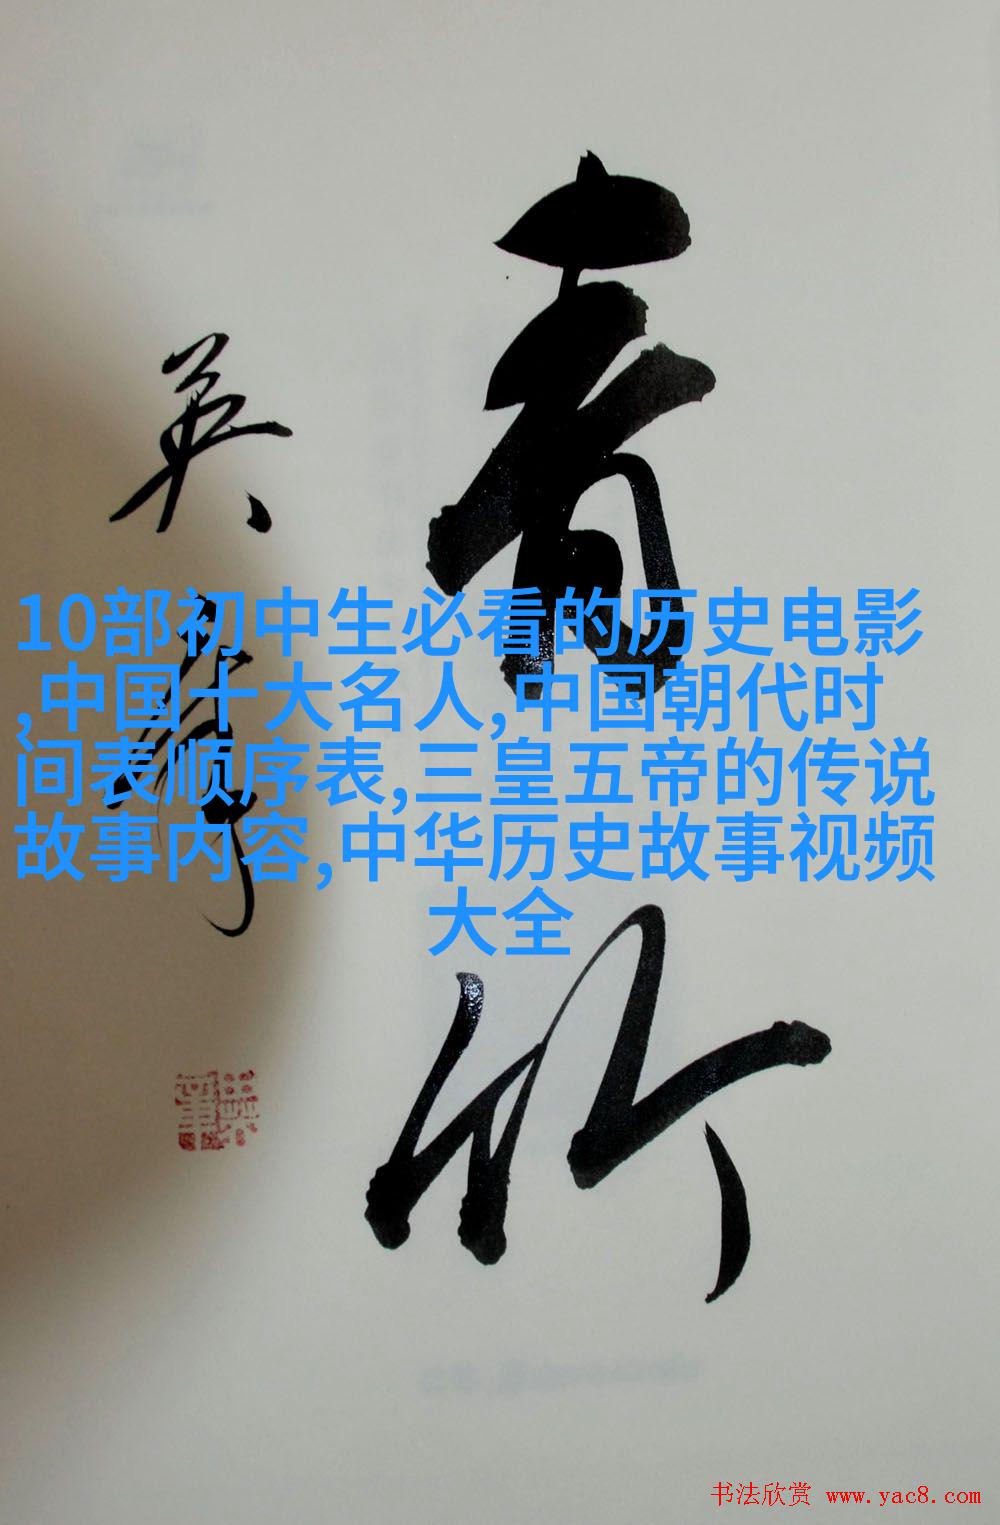 青竹
英
10部初中生必看的历史电影
,中国十大名人,中国朝代时
间表顺序表,三皇五帝的传说
故事内容,中华历史故事视频
大全
书法欣赏 www.yac8.com